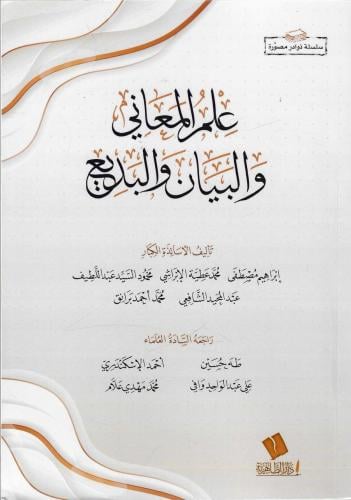 سلسلة نوادر مصورة
علم المعاني
والبيان والبديع
تأليف الأساتذة الكبار
إبراهيم مصطفى محمد عطية الإبراشي محمود السيد عبد اللطيف
عبد المجيد الشافعي محمد أحمد برانق
راجعه السادة العلماء
طه حسين أحمد الإسكندري
علي عبد الواحد وافي محمد مهدي علام
دار الظاهرية